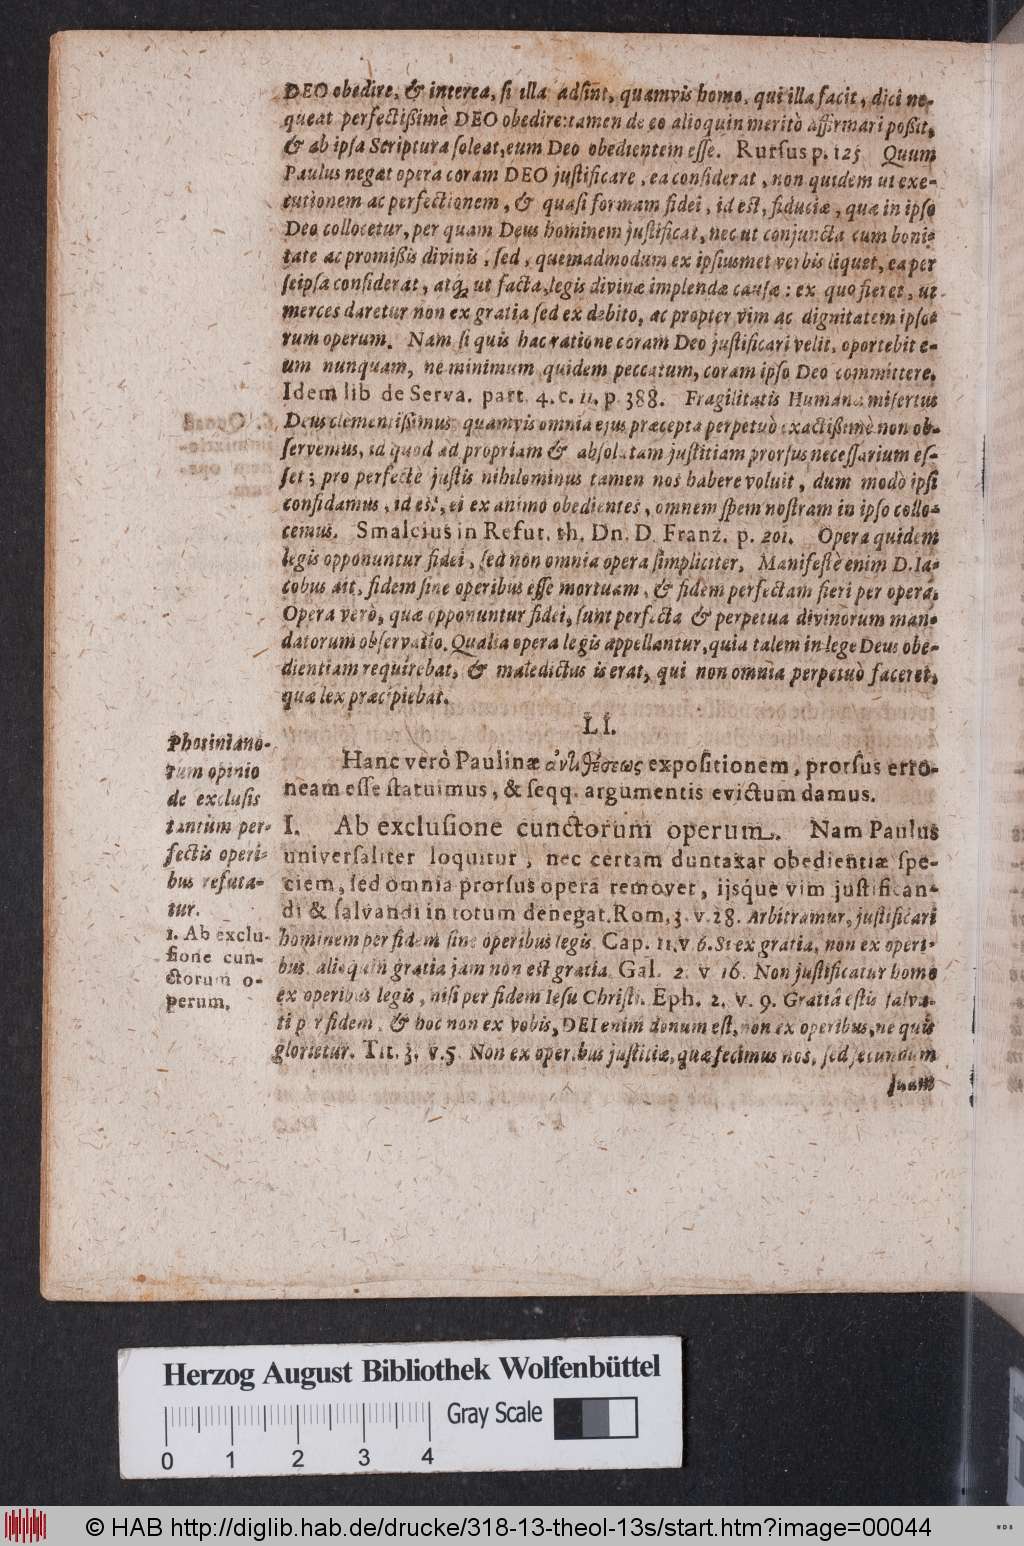 DEO obedire, & interea, si illa adsint, quamvis homo, qui illa facit, dici ne-
queat perfectißimè DEO obedire: tamen de eo alioquin meritò affirmari poßit,
& ab ipsa Scriptura soleat, eum Deo obedientem esse. Rursus p. 125 Quum
Paulus negat opera coram DEO justificare, ea considerat, non quidem ut exe-
cutionem ac perfectionem, & quasi formam fidei, id est, fiduciæ, quæ in ipso
Deo collocetur, per quam Deus hominem justificat, nec ut conjuncta cum boni-
tate ac promißis divinis, sed, quemadmodum ex ipsiusmet verbis liquet, ea per
seipsa considerat, atq; ut facta, legis divinæ implendæ causæ: ex quo fieret, ut
merces daretur non ex gratia sed ex debito, ac propter vim ac dignitatem ipso-
rum operum. Nam si quis hac ratione coram Deo justificari velit, oportebit e-
um nunquam, ne minimum quidem peccatum, coram ipso Deo committere.
Idem lib de Serva. part. 4. c. 11. p. 388. Fragilitatis Humanæ misertus
Deus clementißimus, quamvis omnia ejus præcepta perpetuò exactißimè non ob-
servemus, id quod ad propriam & absolutam justitiam prorsus necessarium es-
set; pro perfectè justis nihilominus tamen nos habere voluit, dum modò ipsi
confidamus, id est, ei ex animo obedientes, omnem spem nostram in ipso collo-
cemus. Smalcius in Refut. th. Dn. D. Franz. p. 201. Opera quidem
legis opponuntur fidei, sed non omnia opera simpliciter. Manifestè enim D. Ia-
cobus ait, fidem sine operibus esse mortuam, & fidem perfectam fieri per opera.
Opera verò, quæ opponuntur fidei, sunt perfecta & perpetua divinorum man-
datorum observatio. Qualia opera legis appellantur, quia talem in lege Deus obe-
dientiam requirebat, & maledictus is erat, qui non omnia perpetuò faceret,
quæ lex præcipiebat.
LI.
Hanc verò Paulinæ ἀντιθέσεως expositionem, prorsus erro-
neam esse statuimus, & seqq. argumentis evictum damus.
Photiniano-
rum opinio
de exclusis
tantùm per-
fectis operi-
bus refuta-
tur.
1. Ab exclu-
sione cun-
ctorum o-
perum.
I. Ab exclusione cunctorum operum. Nam Paulus
universaliter loquitur, nec certam duntaxat obedientiæ spe-
ciem, sed omnia prorsus opera removet, ijsque vim justifican-
di & salvandi in totum denegat. Rom. 3. v. 28. Arbitramur, justificari
hominem per fidem sine operibus legis. Cap. 11. v 6. Si ex gratia, non ex operi-
bus, alioquin gratia jam non est gratia. Gal. 2. v 16. Non justificatur homo
ex operibus legis, nisi per fidem Iesu Christi. Eph. 2. v. 9. Gratiâ estis salva-
ti per fidem, & hoc non ex vobis, DEI enim donum est, non ex operibus, ne quis
glorietur. Tit. 3. v. 5. Non ex operibus justitiæ, quæ fecimus nos, sed secundum
suam
Herzog August Bibliothek Wolfenbüttel
Gray Scale
0 1 2 3 4
© HAB http://diglib.hab.de/drucke/318-13-theol-13s/start.htm?image=00044